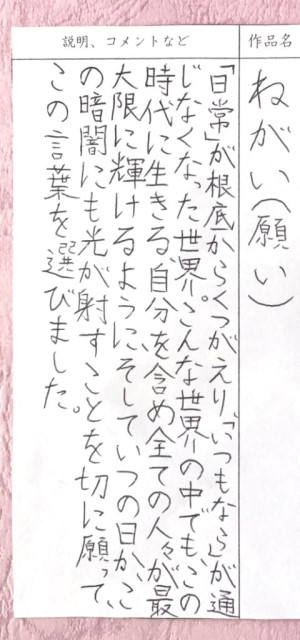 作品名
ねがい(願い)
説明、コメントなど
「日常」が根底からくつがえり、「いつもなら」が通
じなくなった世界。こんな世界の中でも、この
時代に生きる自分を含め全ての人々が最
大限に輝けるように、そしていつの日か、こ
の暗闇にも光が射すことを切に願って、
この言葉を選びました。